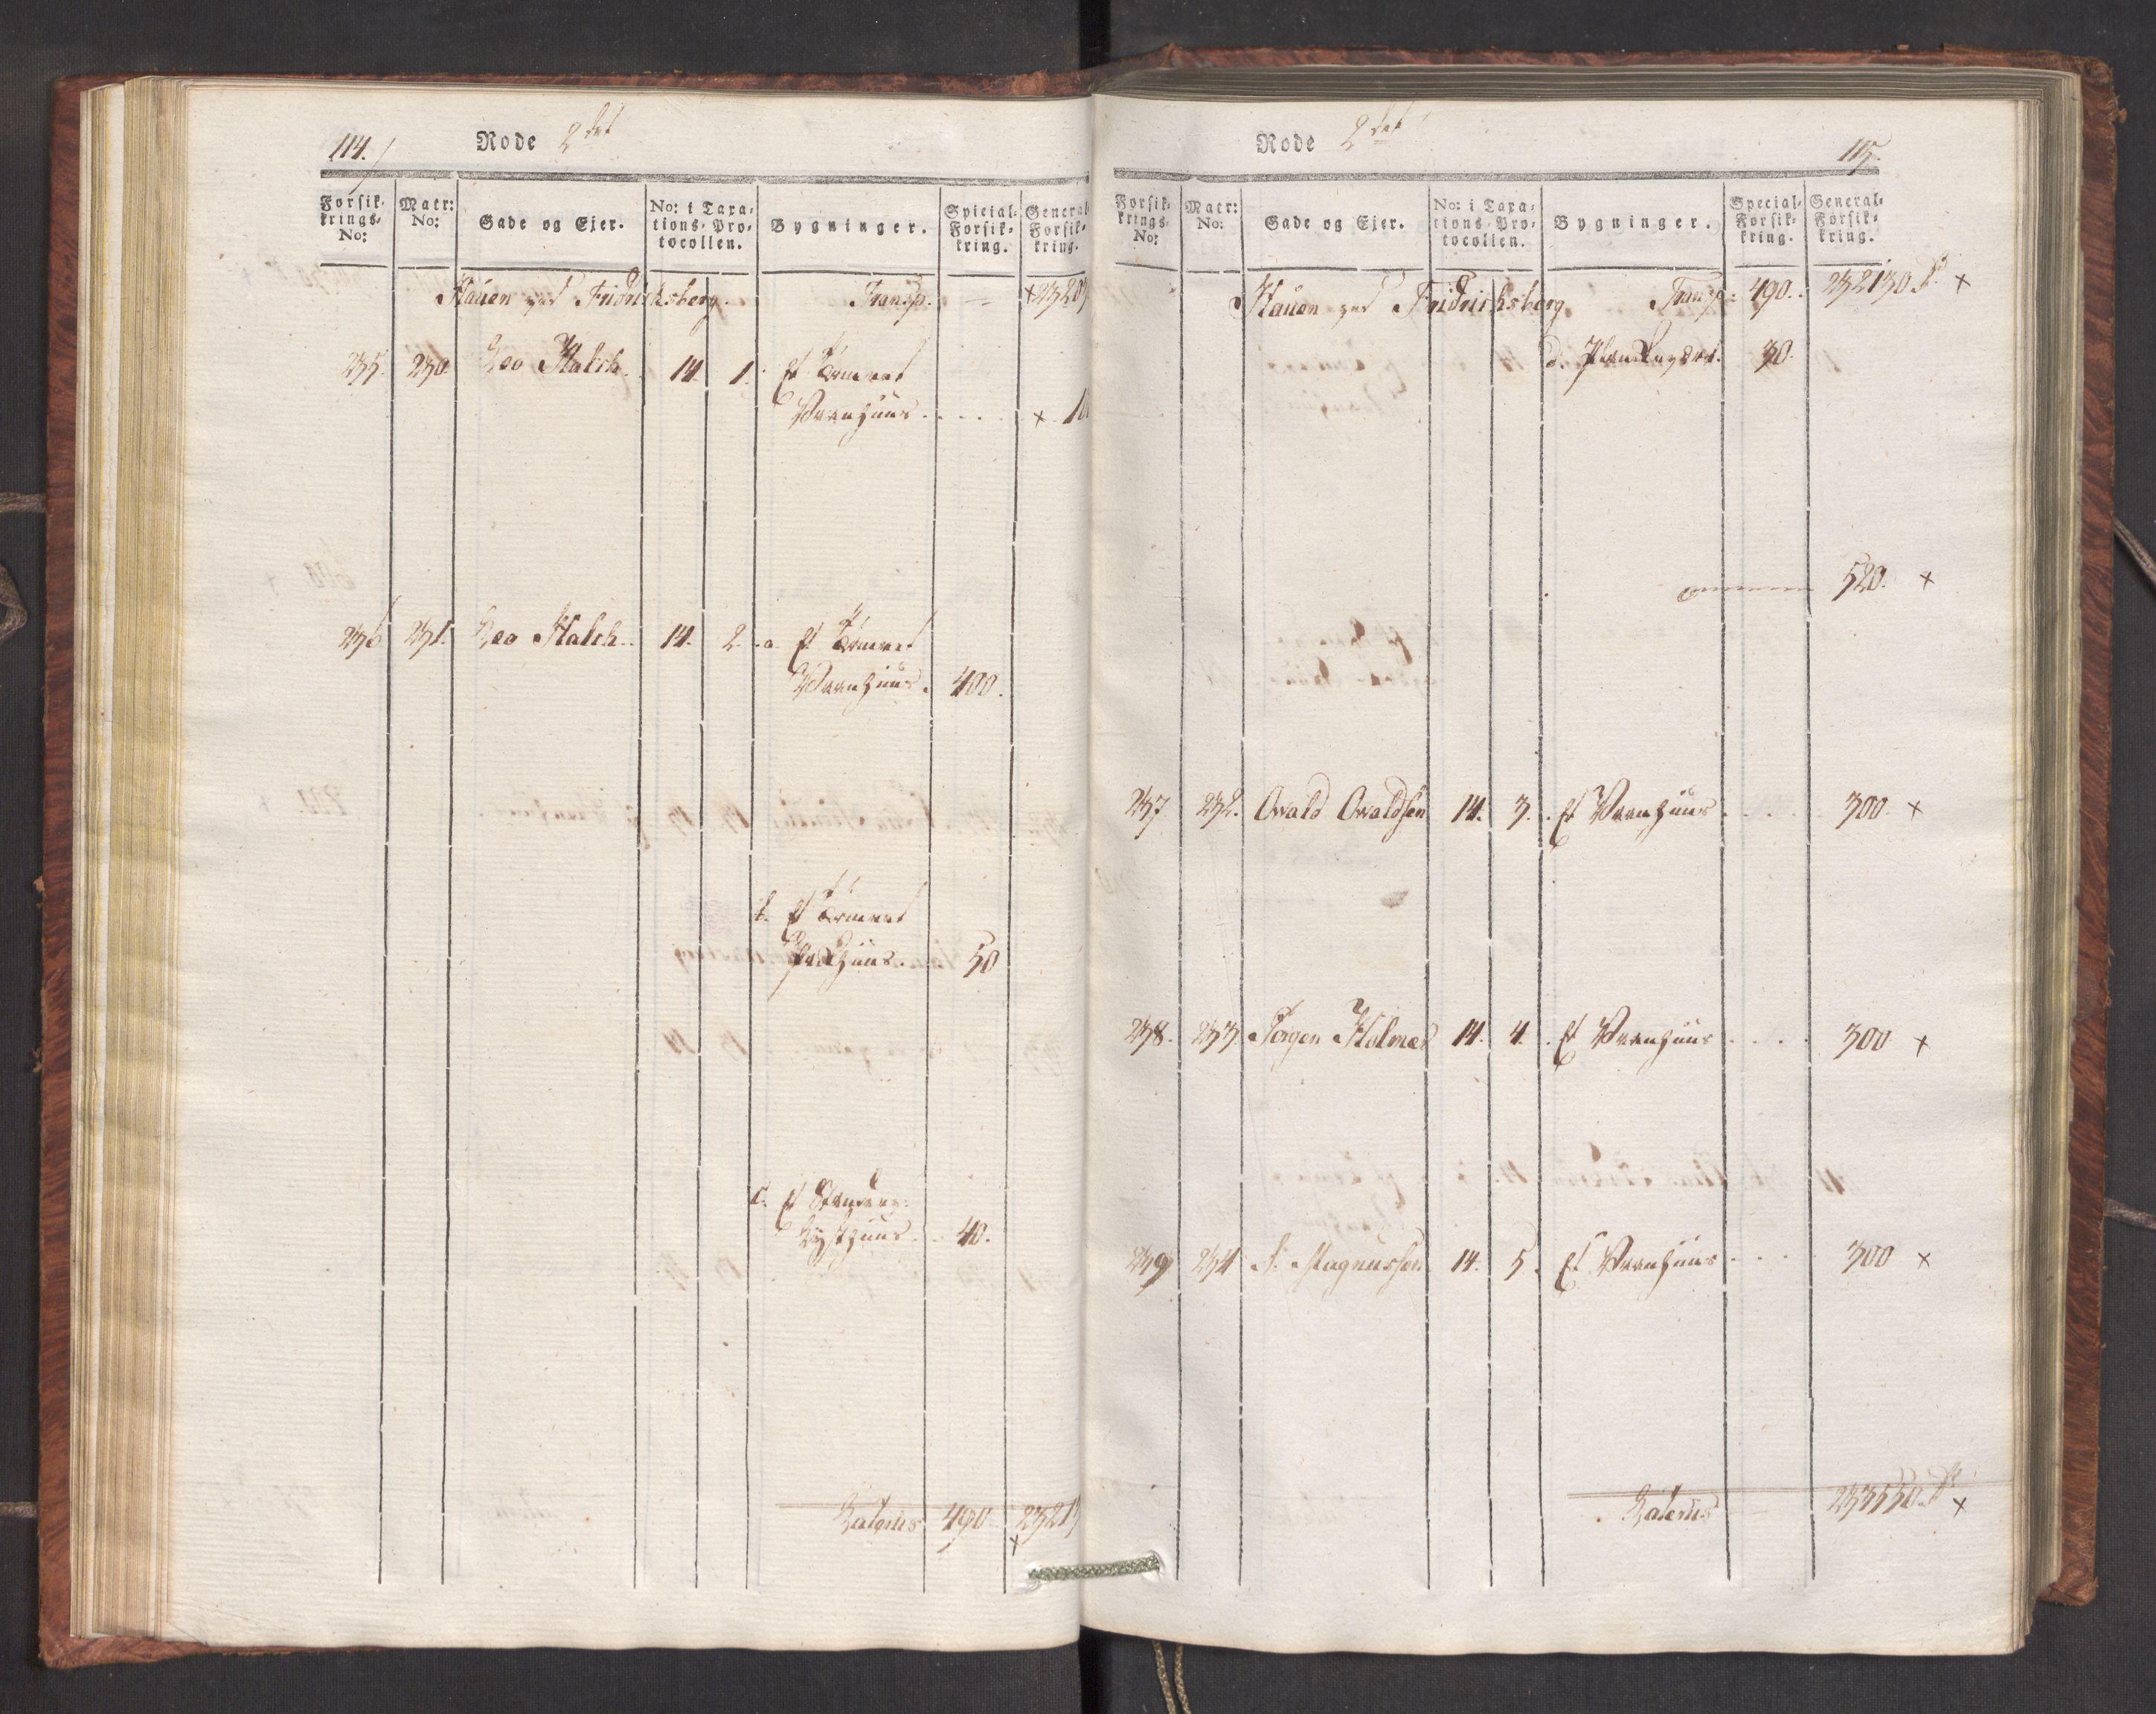 114.
Rode 2det
Forsik-
krings-
No:
Matr:
No:
Gade og Ejer.
No: i Taxa-
tions-Pro-
tocollen.
Bygninger.
Special-
Forsik-
kring.
General-
Forsik-
kring.
Hauen ved Fridrichsberg. Transp. — +2320
235. 230. Leo Halck. 14. 1. Et Tømret
Vaanhuus . . . . + 10
236 231. Leo Halck. 14. 2. a. Et Tømret
Vaanhuus. 400.
b. Et Tømret
huus. 50
c. Et
Lysthuus. 40.
Lateris 490 23213
+
Rode 2det
115.
Forsik-
krings-
No:
Matr:
No:
Gade og Ejer.
No: i Taxa-
tions-Pro-
tocollen.
Bygninger.
Special-
Forsik-
kring.
General-
Forsik-
kring.
Hauen ved Fridrichsberg Transp: 490. 232130 +
d. 30.
520. +
237 232. Owald Owaldsen 14. 3. Et Vaanhuus . . . . 300 +
238. 233. Jørgen Holmer 14. 4. Et Vaanhuus . . . . 300 +
239 234 Magnussen 14. 5. Et Vaanhuus . . . 300 +
Lateris 233550 +